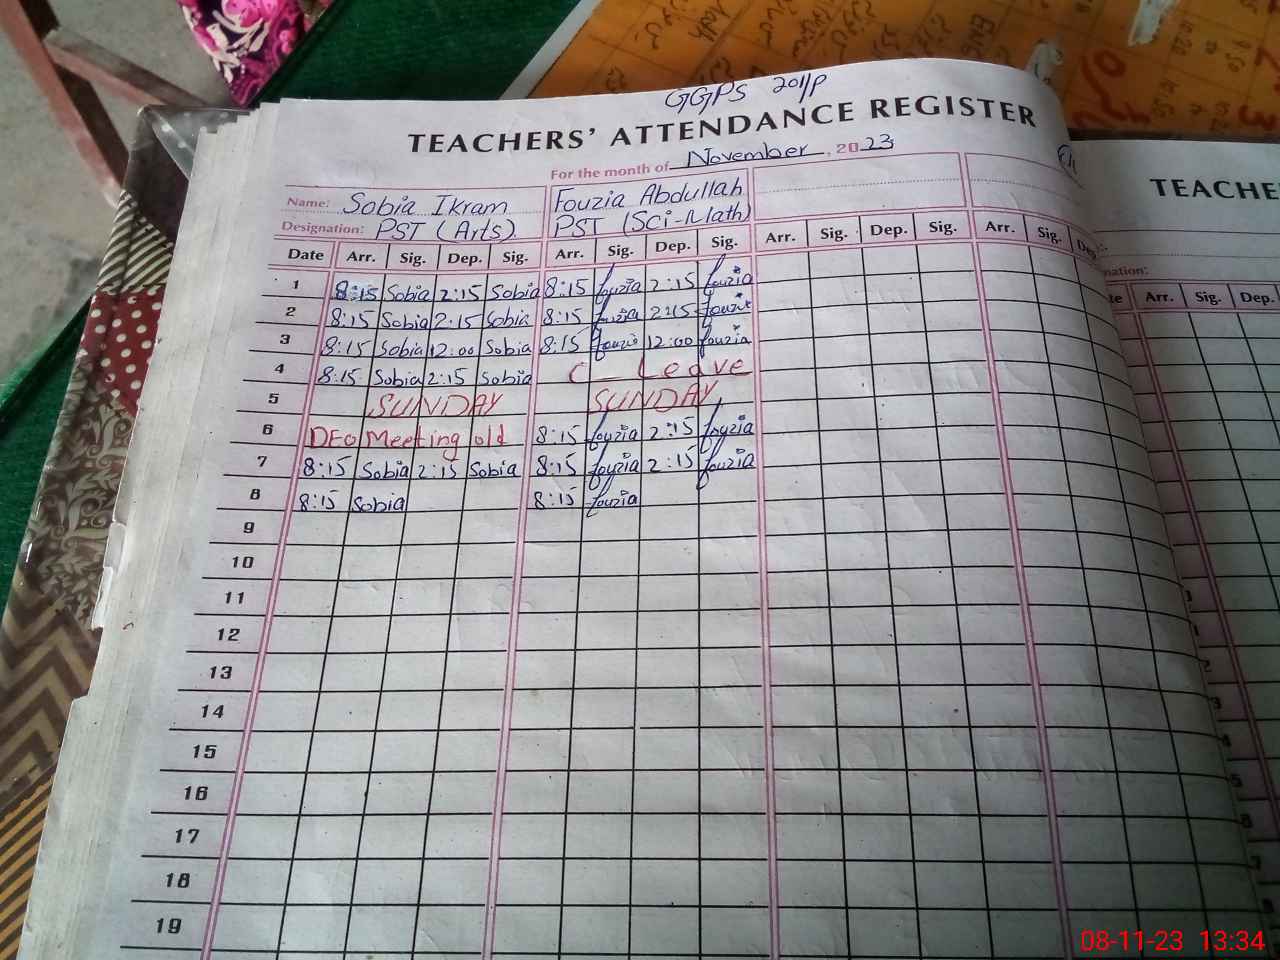 GGPS 201/P
TEACHERS' ATTENDANCE REGISTER
For the month of November, 2023
Name: Sobia Ikram Fouzia Abdullah
Designation: PST (Arts) PST (Sci-Math)
Date Arr. Sig. Dep. Sig. Arr. Sig. Dep. Sig. Arr. Sig. Dep. Sig. Arr. Sig. Dep
1 8:15 Sobia 2:15 Sobia 8:15 fouzia 2:15 fouzia
2 8:15 Sobia 2:15 Sobia 8:15 fouzia 2:15 fouzia
3 8:15 Sobia 12:00 Sobia 8:15 fouzia 12:00 fouzia
4 8:15 Sobia 2:15 Sobia C_ Leave
5 SUNDAY SUNDAY
6 DEO Meeting old 8:15 fouzia 2:15 fouzia
7 8:15 Sobia 2:15 Sobia 8:15 fouzia 2:15 fouzia
8 8:15 Sobia 8:15 fouzia
9
10
11
12
13
14
15
16
17
18
19
TEACHE
nation:
te Arr. Sig. Dep.
08-11-23 13:34